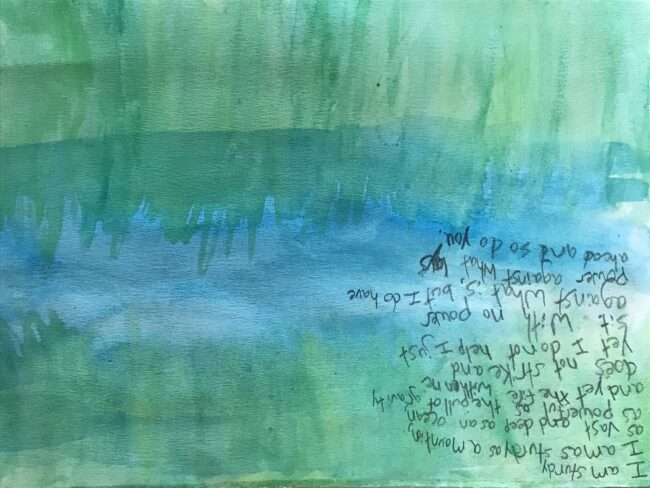 I am sturdy
I am as sturdy as a mountin
as vast and deep as an ocean
as powerful as the pull of gravity
and yet the fire withen me
does not strike and
yet I do not help I just
sit with no power
against what is, but I do have
power against what lays
ahead and so do you.